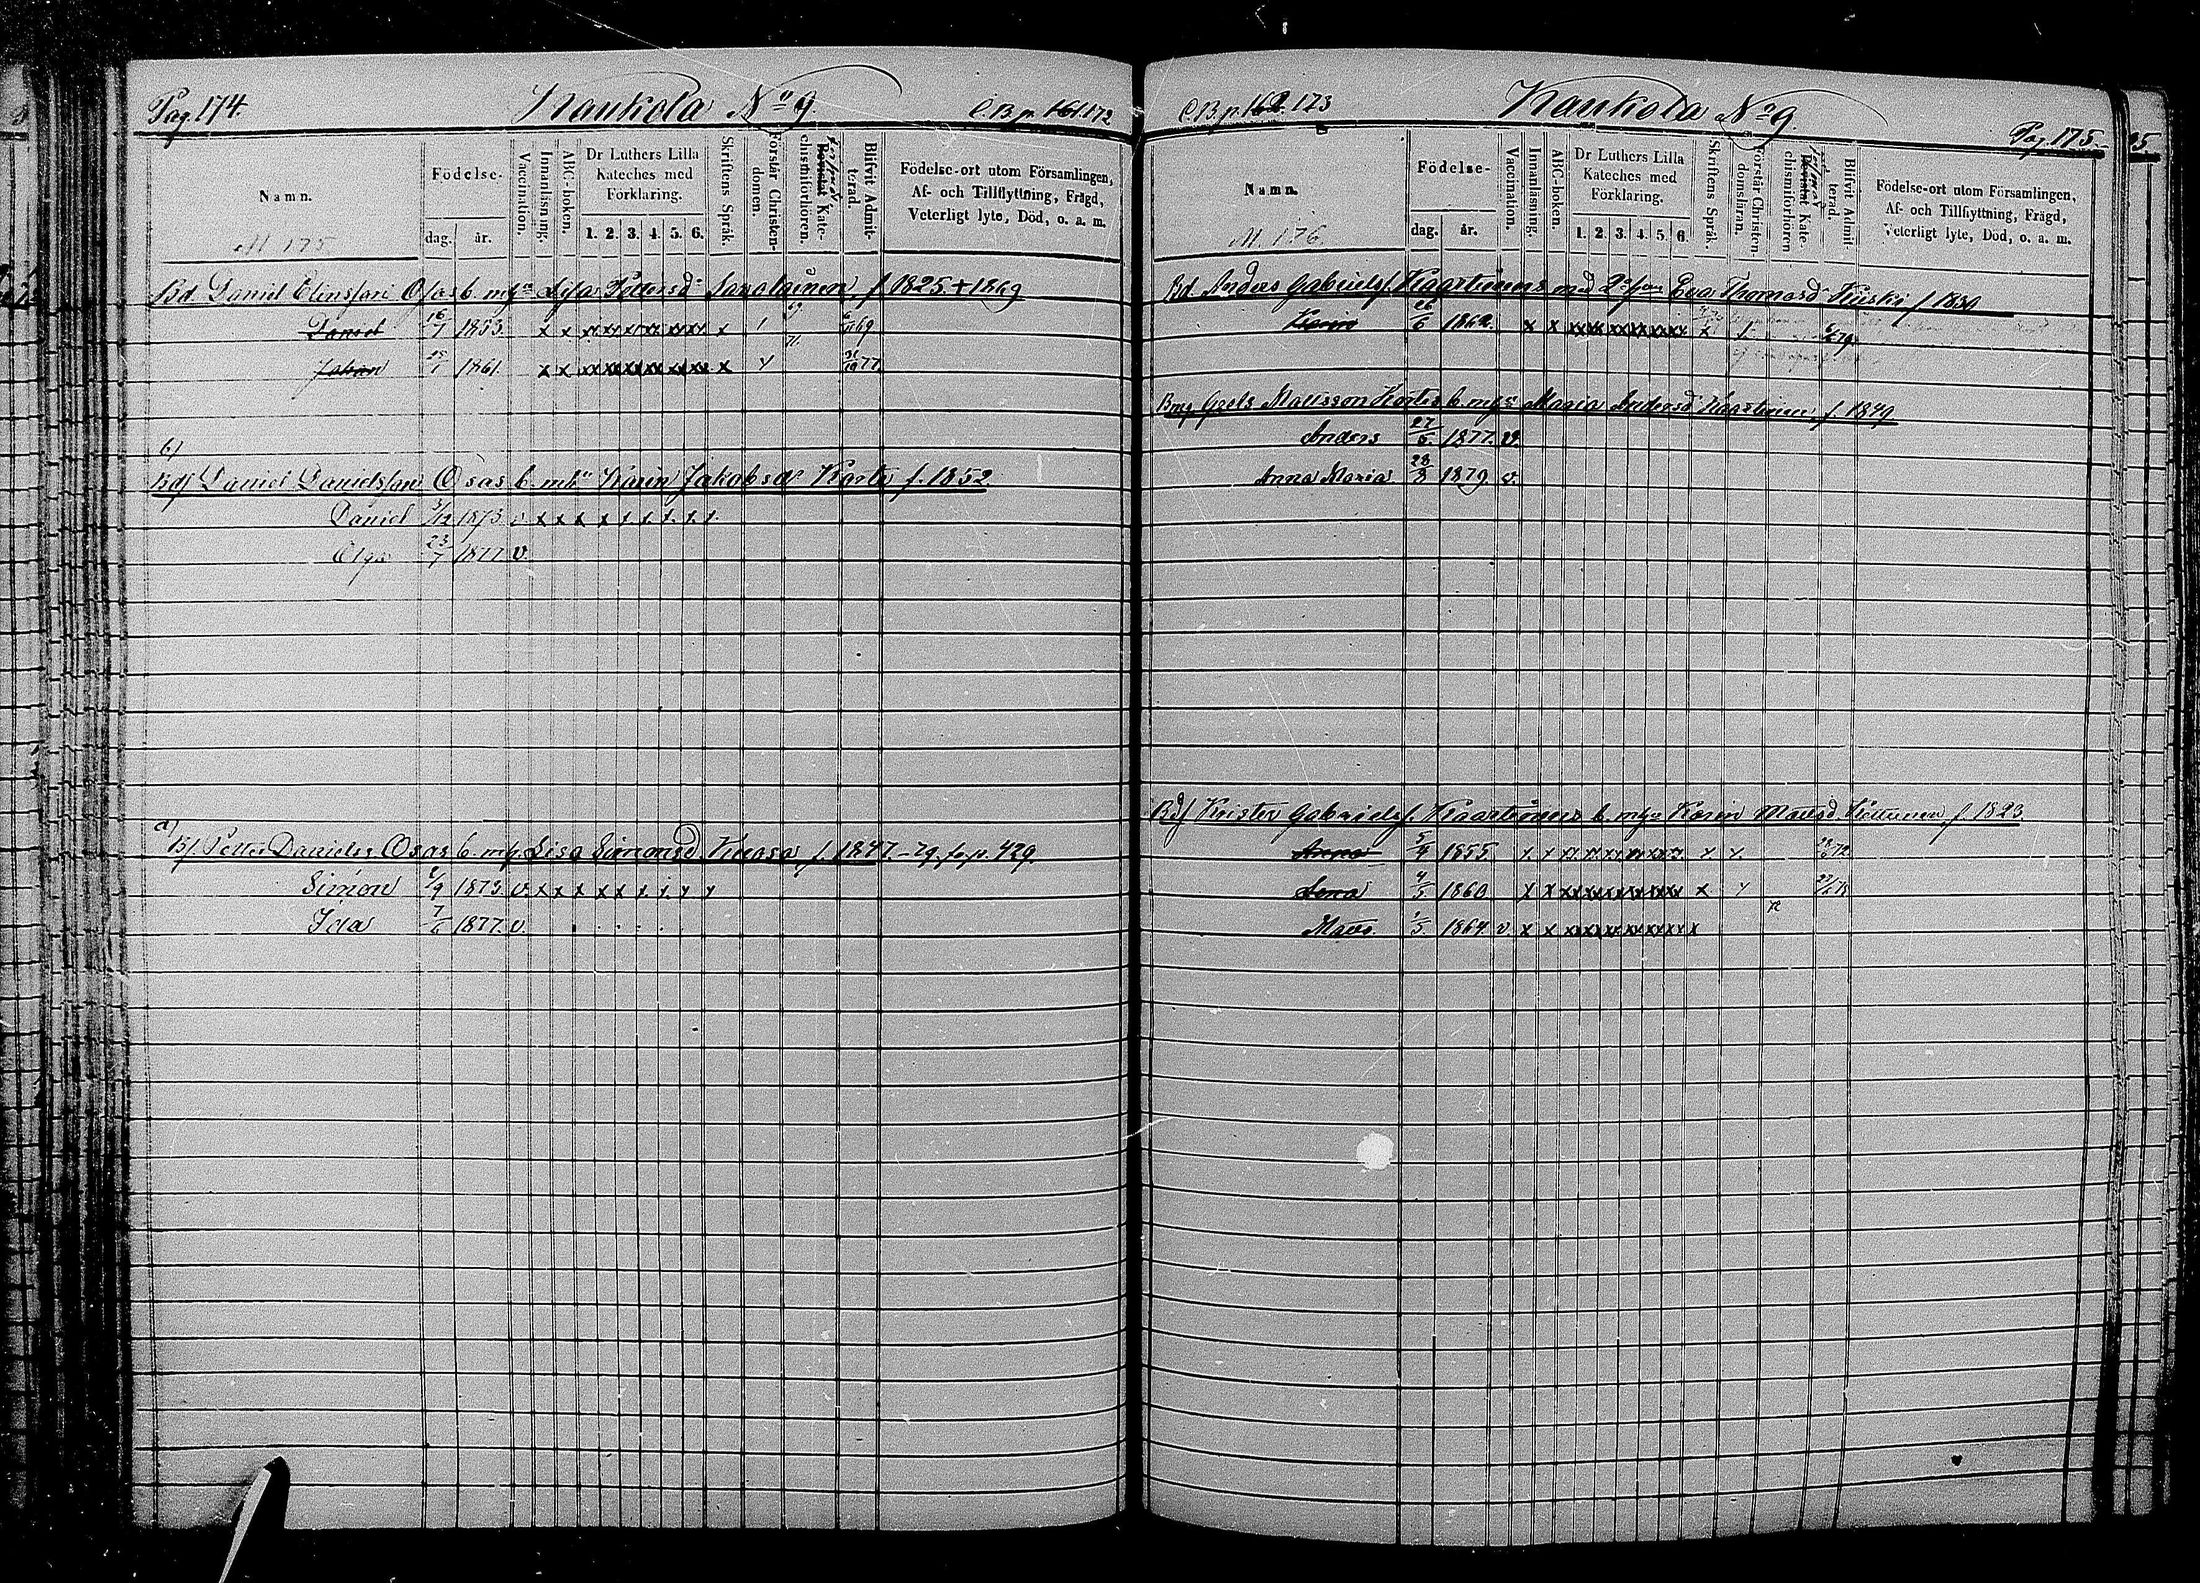 Pag. 174. Kaukola No 9 C.B.p. 161.172
Namn. Födelse- dag. år. Vaccination. Innanläsning. ABC-boken. Dr Luthers Lilla Kateches med Förklaring. 1. 2. 3. 4. 5. 6. Skriftens Språk. Förstår Christendomen. Bevistat Katechismiförhören. Blifvit Admitterad. Födelse-ort utom Församlingen, Af- och Tillflyttning, Frägd, Veterligt lyte, Död, o. a. m.
M. 175
Bd. Daniel Elinsson Osas b. m hu Lisa Pettersd Savolainen f 1825 + 1869
Daniel 16/7 1853. x x xx xx xx xx xx xx x 69
Johan 1861. x x xx xx xx xx xx xx x 77
b)
Bdf Daniel Danielsson Osas b. mhu Karin Jakobsd Karto f. 1852
Daniel /12 1873. v x x x x x x. x. x. x.
Olga 23/7 1877. v.
a)
Bf Petter Daniels. Osas b. mh. Lisa Simonsd Kuosa f. 1847. - 79. fr. p. 429.
Simon /9 1873. v. x x x x x x. x. x x
Ida 7/6 1877. v.
C.B.p. 162.173 Kaukola No 9. Pag. 175.
Namn. Födelse- dag. år. Vaccination. Innanläsning. ABC-boken. Dr Luthers Lilla Kateches med Förklaring. 1. 2. 3. 4. 5. 6. Skriftens Språk. Förstår Christendomsläran. Bevistat Katechismiförhören Blifvit Admitterad. Födelse-ort utom Församlingen, Af- och Tillflyttning, Frägd, Veterligt lyte, Död, o. a. m.
M. 176
Bd. Anders Gabrielsf. Kaartinen med 2 hu Eva Thomasd Kiiski f 1830
Karin 26/6 1862. x x xx xx xx xx xx xx x 79
Matsson b. mhu Maria Andersd Kaartinen f. 1849
Anders 27/5 1877. v.
Anna Maria 28/8 1879. v.
Bdf Krister Gabrielsf. Kaartinen b. mhu Karin Mattsd f. 1823
Anna 5/4 1855 x. x xx xx xx xx xx xx. x x. 72
Lena 4/5 1860. x x xx xx xx xx xx xx x 78
Matts. 1/5 1864. v. x x xx xx xx xx xx xx x